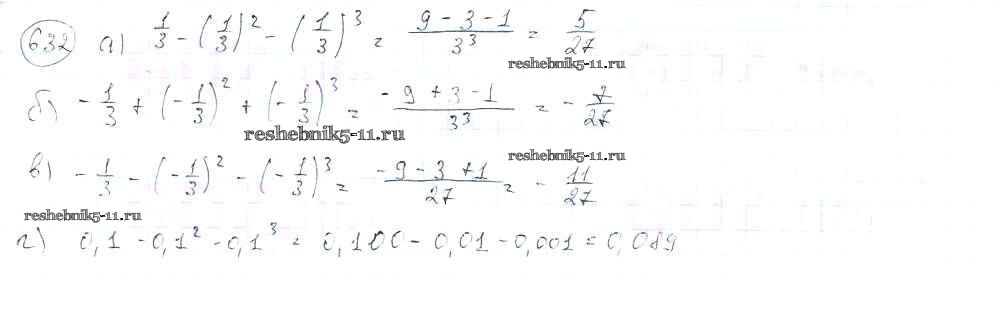 632 а) 1/3 - (1/3)² - (1/3)³ = (9 - 3 - 1)/3³ = 5/27
reshebnik5-11.ru
б) -1/3 + (-1/3)² + (-1/3)³ = (-9 + 3 - 1)/3³ = -7/27
reshebnik5-11.ru
reshebnik5-11.ru
в) -1/3 - (-1/3)² - (-1/3)³ = (-9 - 3 + 1)/27 = -11/27
reshebnik5-11.ru
г) 0,1 - 0,1² - 0,1³ = 0,100 - 0,01 - 0,001 = 0,089